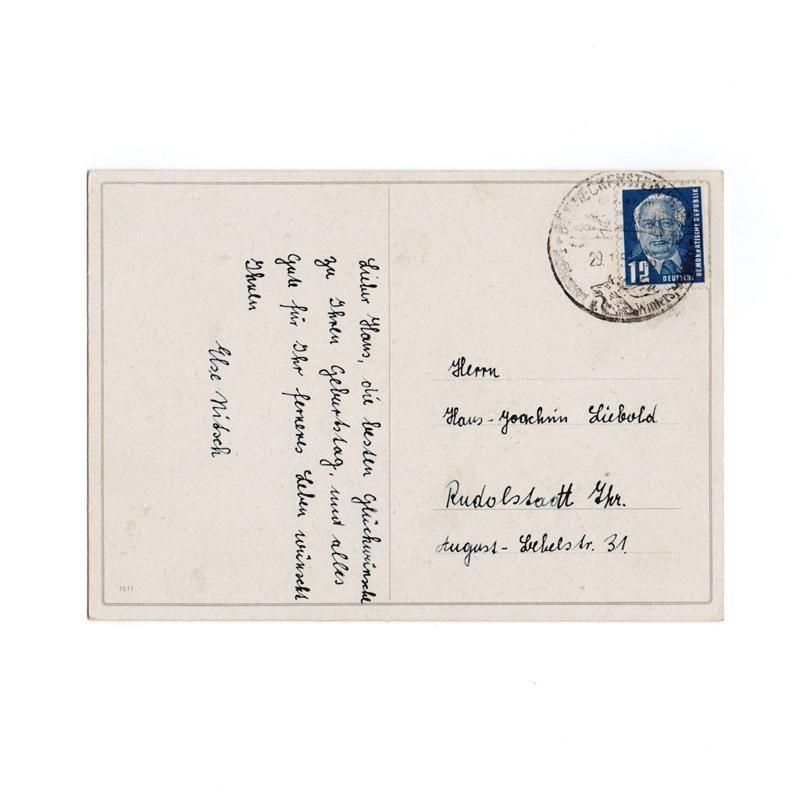 Lieber Hans, die besten Glückwünsche
zu Ihren Geburtstag, und alles
Gute für Ihr ferneres Leben wünscht
Ihnen
Else Nitsch
BENNECKENSTEIN
29.1
12
DEUTSCHE
DEMOKRATISCHE REPUBLIK
Herrn
Hans-Joachim Liebold
Rudolstadt Thr.
August-Bebelstr. 31
1011